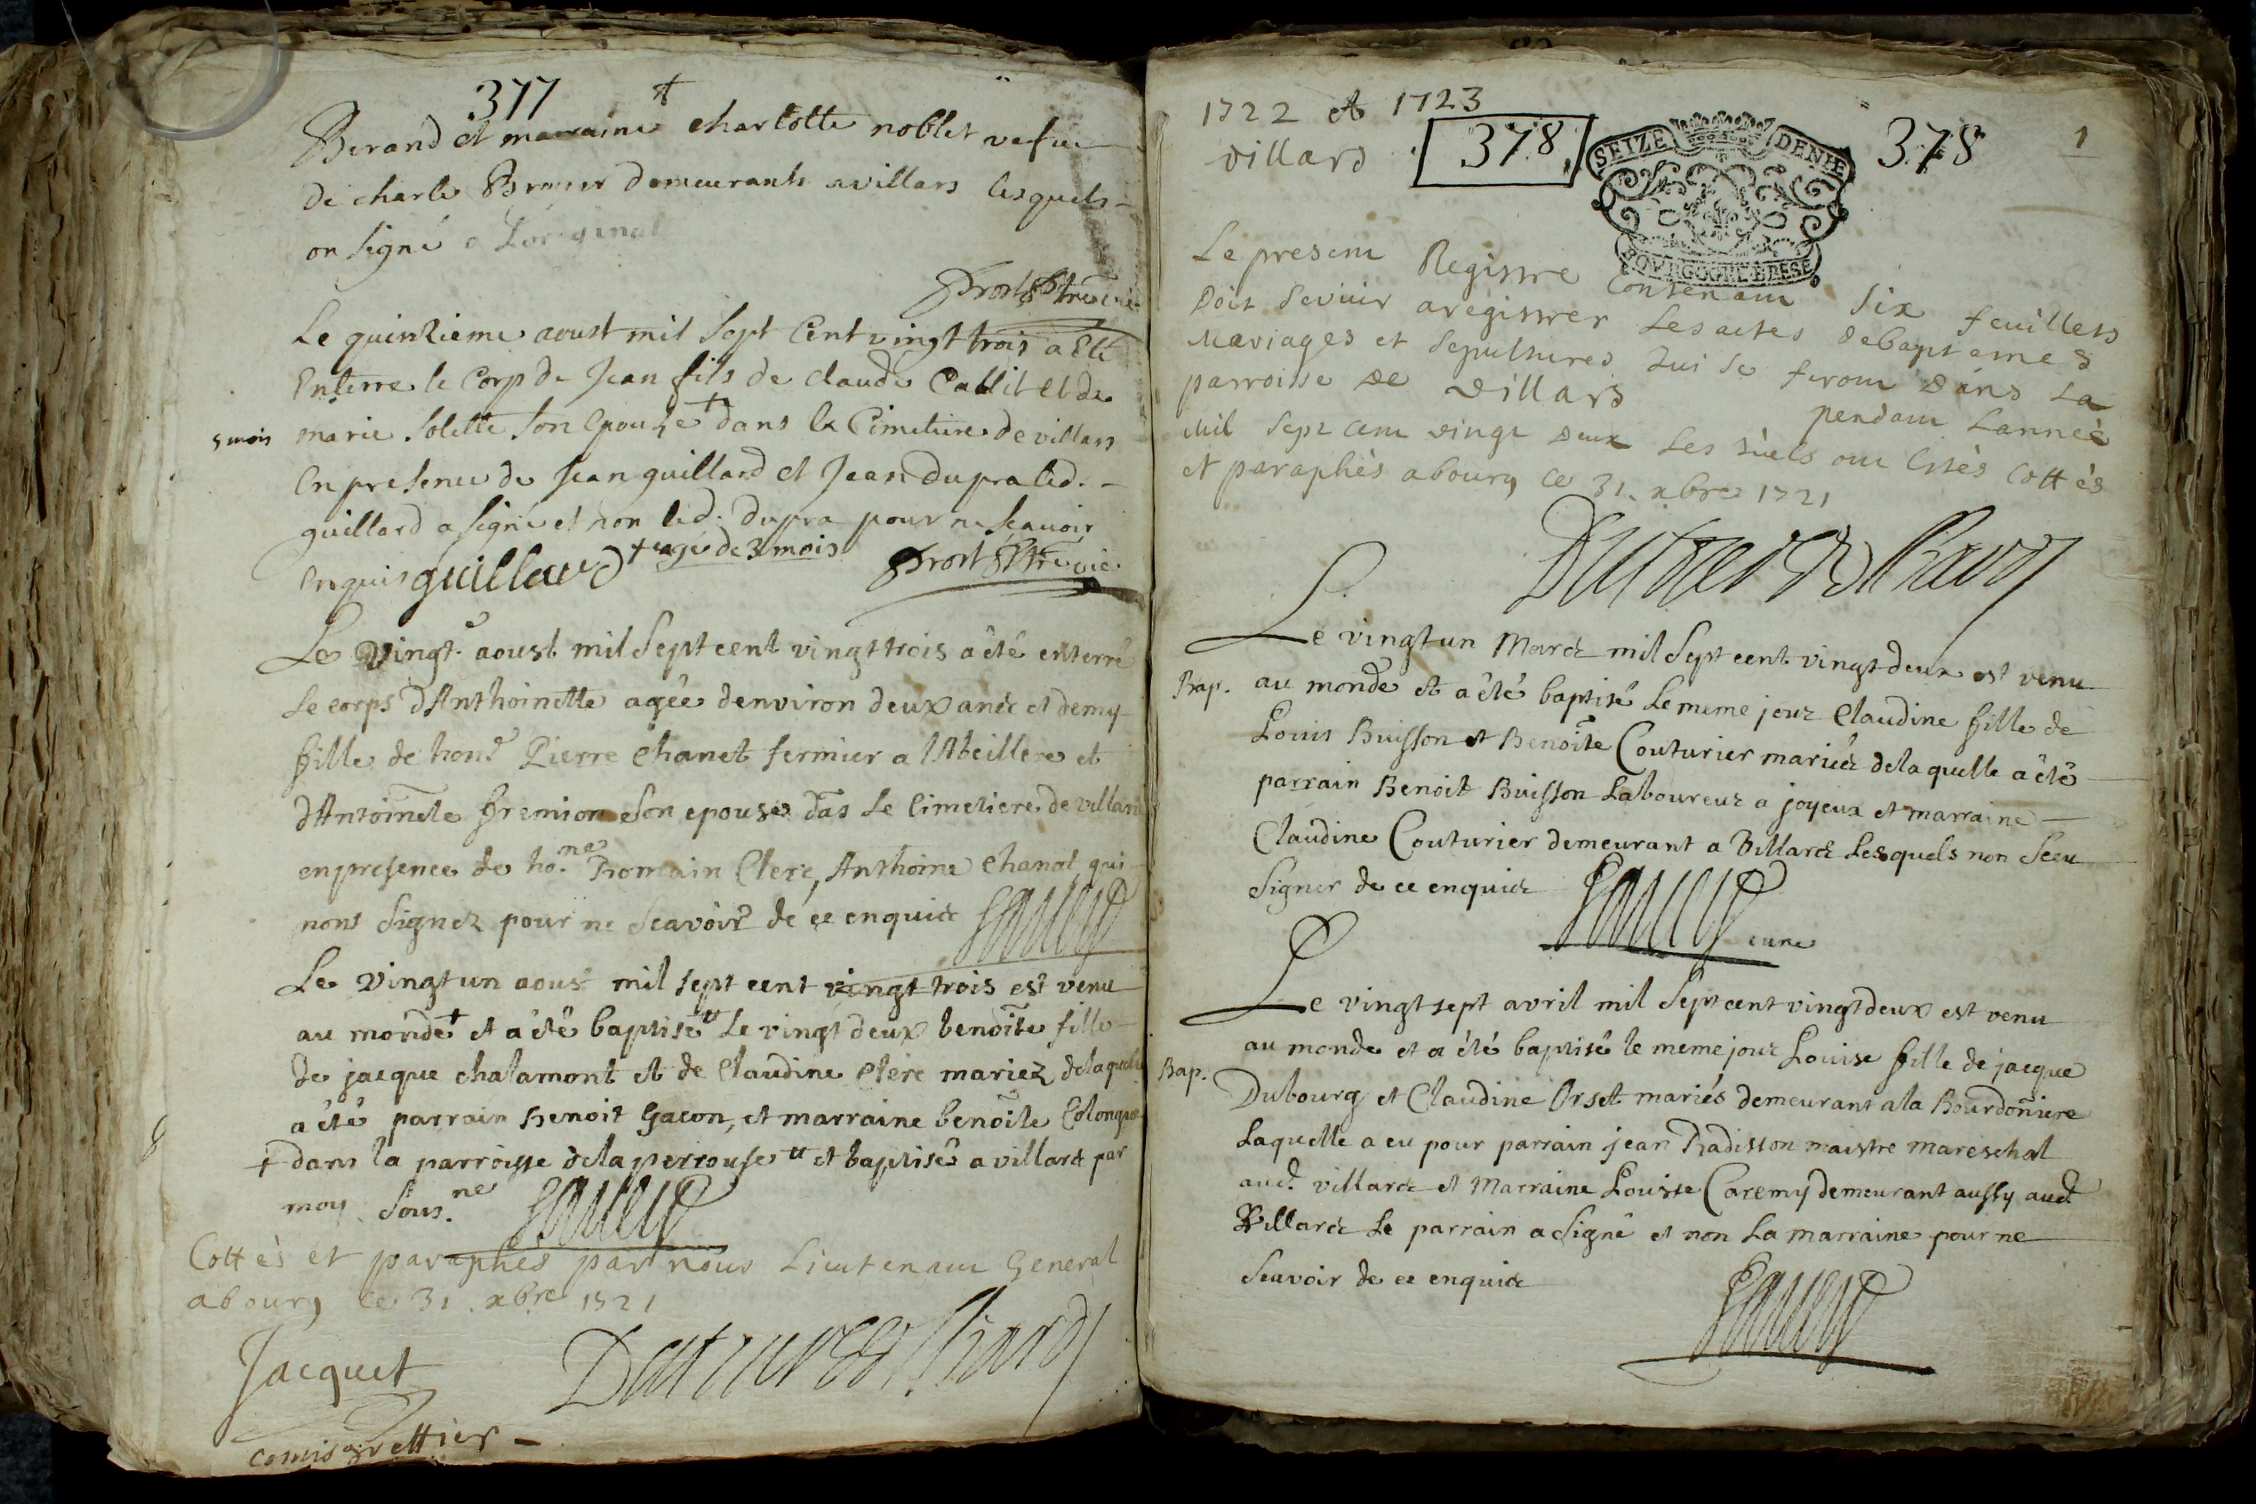 377
Berand et marraine charlotte noblet vefue
de charle Broyer demeurants a villars lesquels
on signé a L'original
Drost Ptre vic
Le quinzieme aoust mil sept cent vingt trois a esté
Enterré le Corp de Jean fils de claude Callit et de
5 mois marie Solette son épouze + dans le Cimetiere de villars
En presence de Jean guillard et Jean dupra led.
guillard a signé et non led. dupra pour ne scauoir
Enquis guillard + agé de 3 mois Drost Ptre vic
Le Vingt.e aoust mil sept cent vingt trois a été enterré
le corps d'Anthoinette agée denviron deux anéz et demy
fille de hon.e Pierre Chanet fermier a l'Abeillere et
d'Antoinete fremion son epouse das le Cimetiere de villard
en presence de ho.ne Romain Clerc, Anthoine Chanal qui
nont signez pour ne scavoir de ce enquiz
Le Vingt un aoust mil sept cent vingt trois est venu
au monde + et a été baptisé # le vingt deux benoîte fille
de jacque chalamont et de Claudine Clerc mariez de laquelle
a été parrain Benoit Gacon, et marraine benoîte Colongue
+ dans la parroisse de la perrouse # et baptisé a villard par
moy sous.ne
Cottés et paraphés par nous Lieutenant General
a bourg ce 31. xbre 1721
Jacquet
comis greffier
1722 et 1723
villard 378 378 1
SEIZE DENIE
BOURGOGNE BRESE
Le present Registre Contenant six feuillets
Doit servir a registrer les actes de baptemes
Mariages et sepultures qui se feront Dans La
parroisse De Villars pendant Lannée
Mil sept cent vingt Deux Les ont Estés Cottés
et paraphés a bourg ce 31. xbre 1721
Le vingt un Marz mil sept cent vingt deux est venu
Bap. au monde et a été baptisé le meme jour Claudine fille de
Louis Buisson et Benoîte Couturier mariéz de laquelle a été
parrain Benoit Buisson Laboureur a joyeux et marraine
Claudine Couturier demeurant a Villarz lesquels non sceu
signer de ce enquiz
cure
Le vingt sept avril mil sept cent vingt deux est venu
au monde et a été baptisé le meme jour Louise fille de jacque
Bap. Dubourg et Claudine Orset mariés demeurant a la Bourdoniere
Laquelle a eu pour parrain jean Radisson maistre mareschal
aud.t villarz et Marraine Louise Caremy demeurant aussy aud.t
Villarz le parrain a signé et non la marraine pour ne
scavoir de ce enquiz